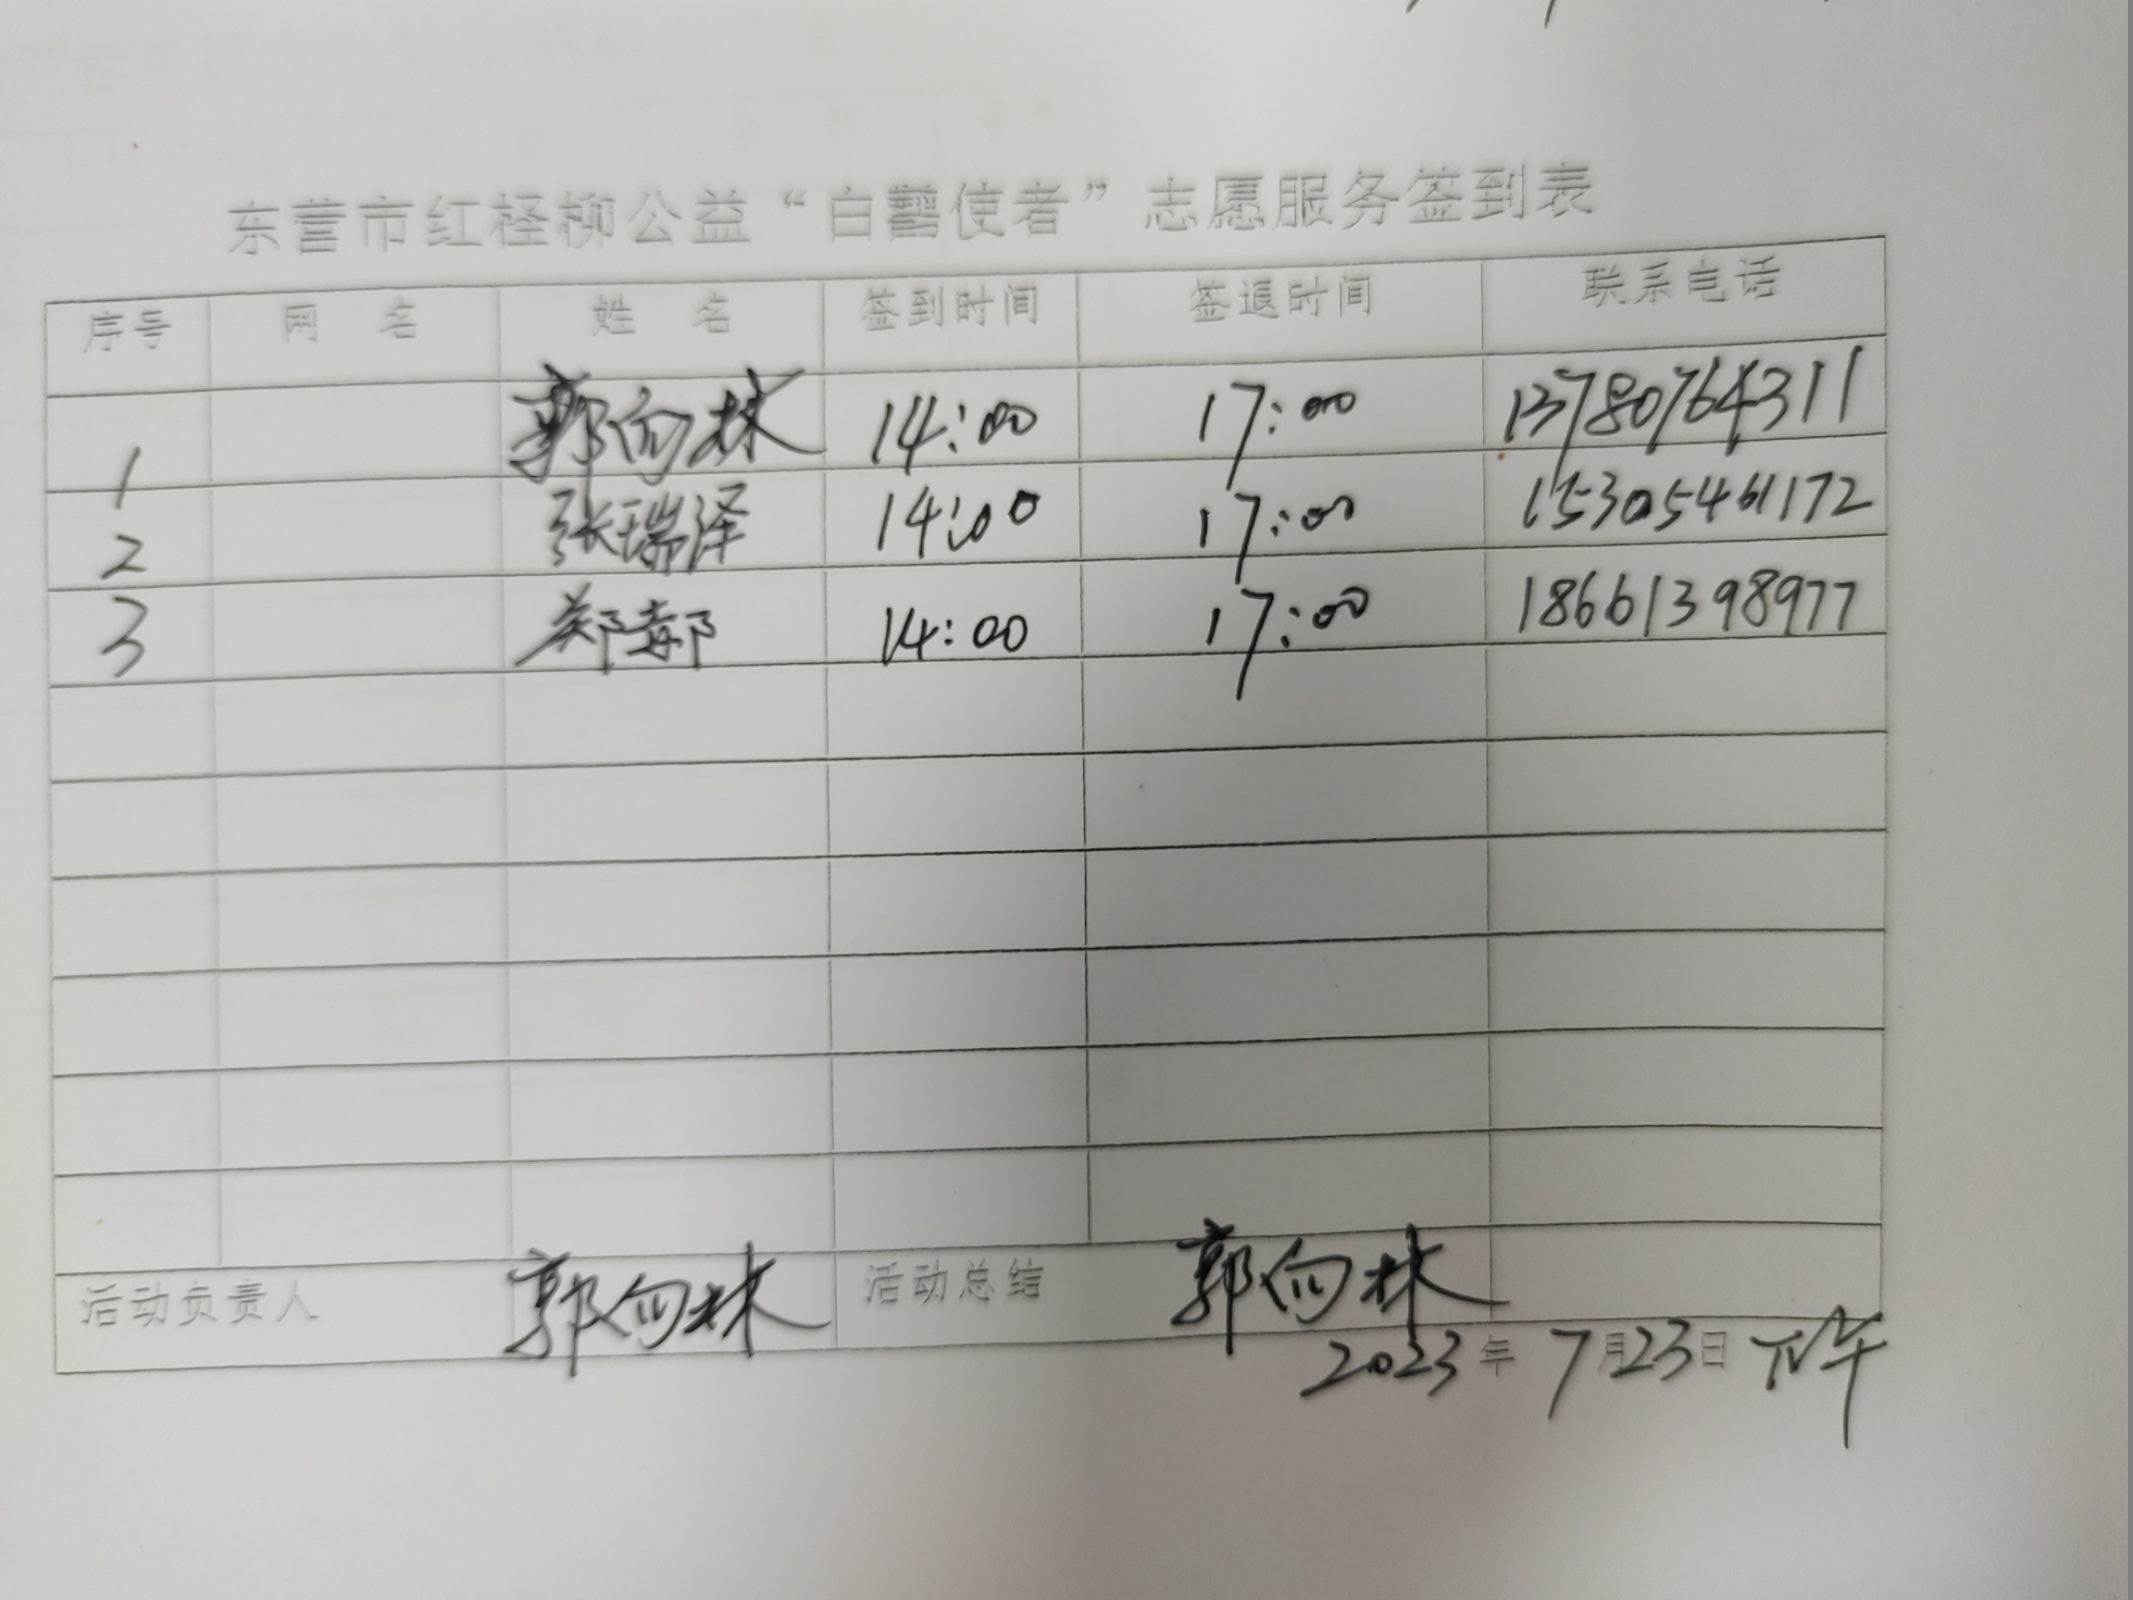 东营市红柽柳公益“白鹳使者”志愿服务签到表
序号 网 名 姓 名 签到时间 签退时间 联系电话
1 郭向林 14:00 17:00 13780764311
2 张瑞泽 14:00 17:00 15305461172
3 郑 14:00 17:00 18661398977
活动负责人 郭向林 活动总结 郭向林
2023年7月23日下午